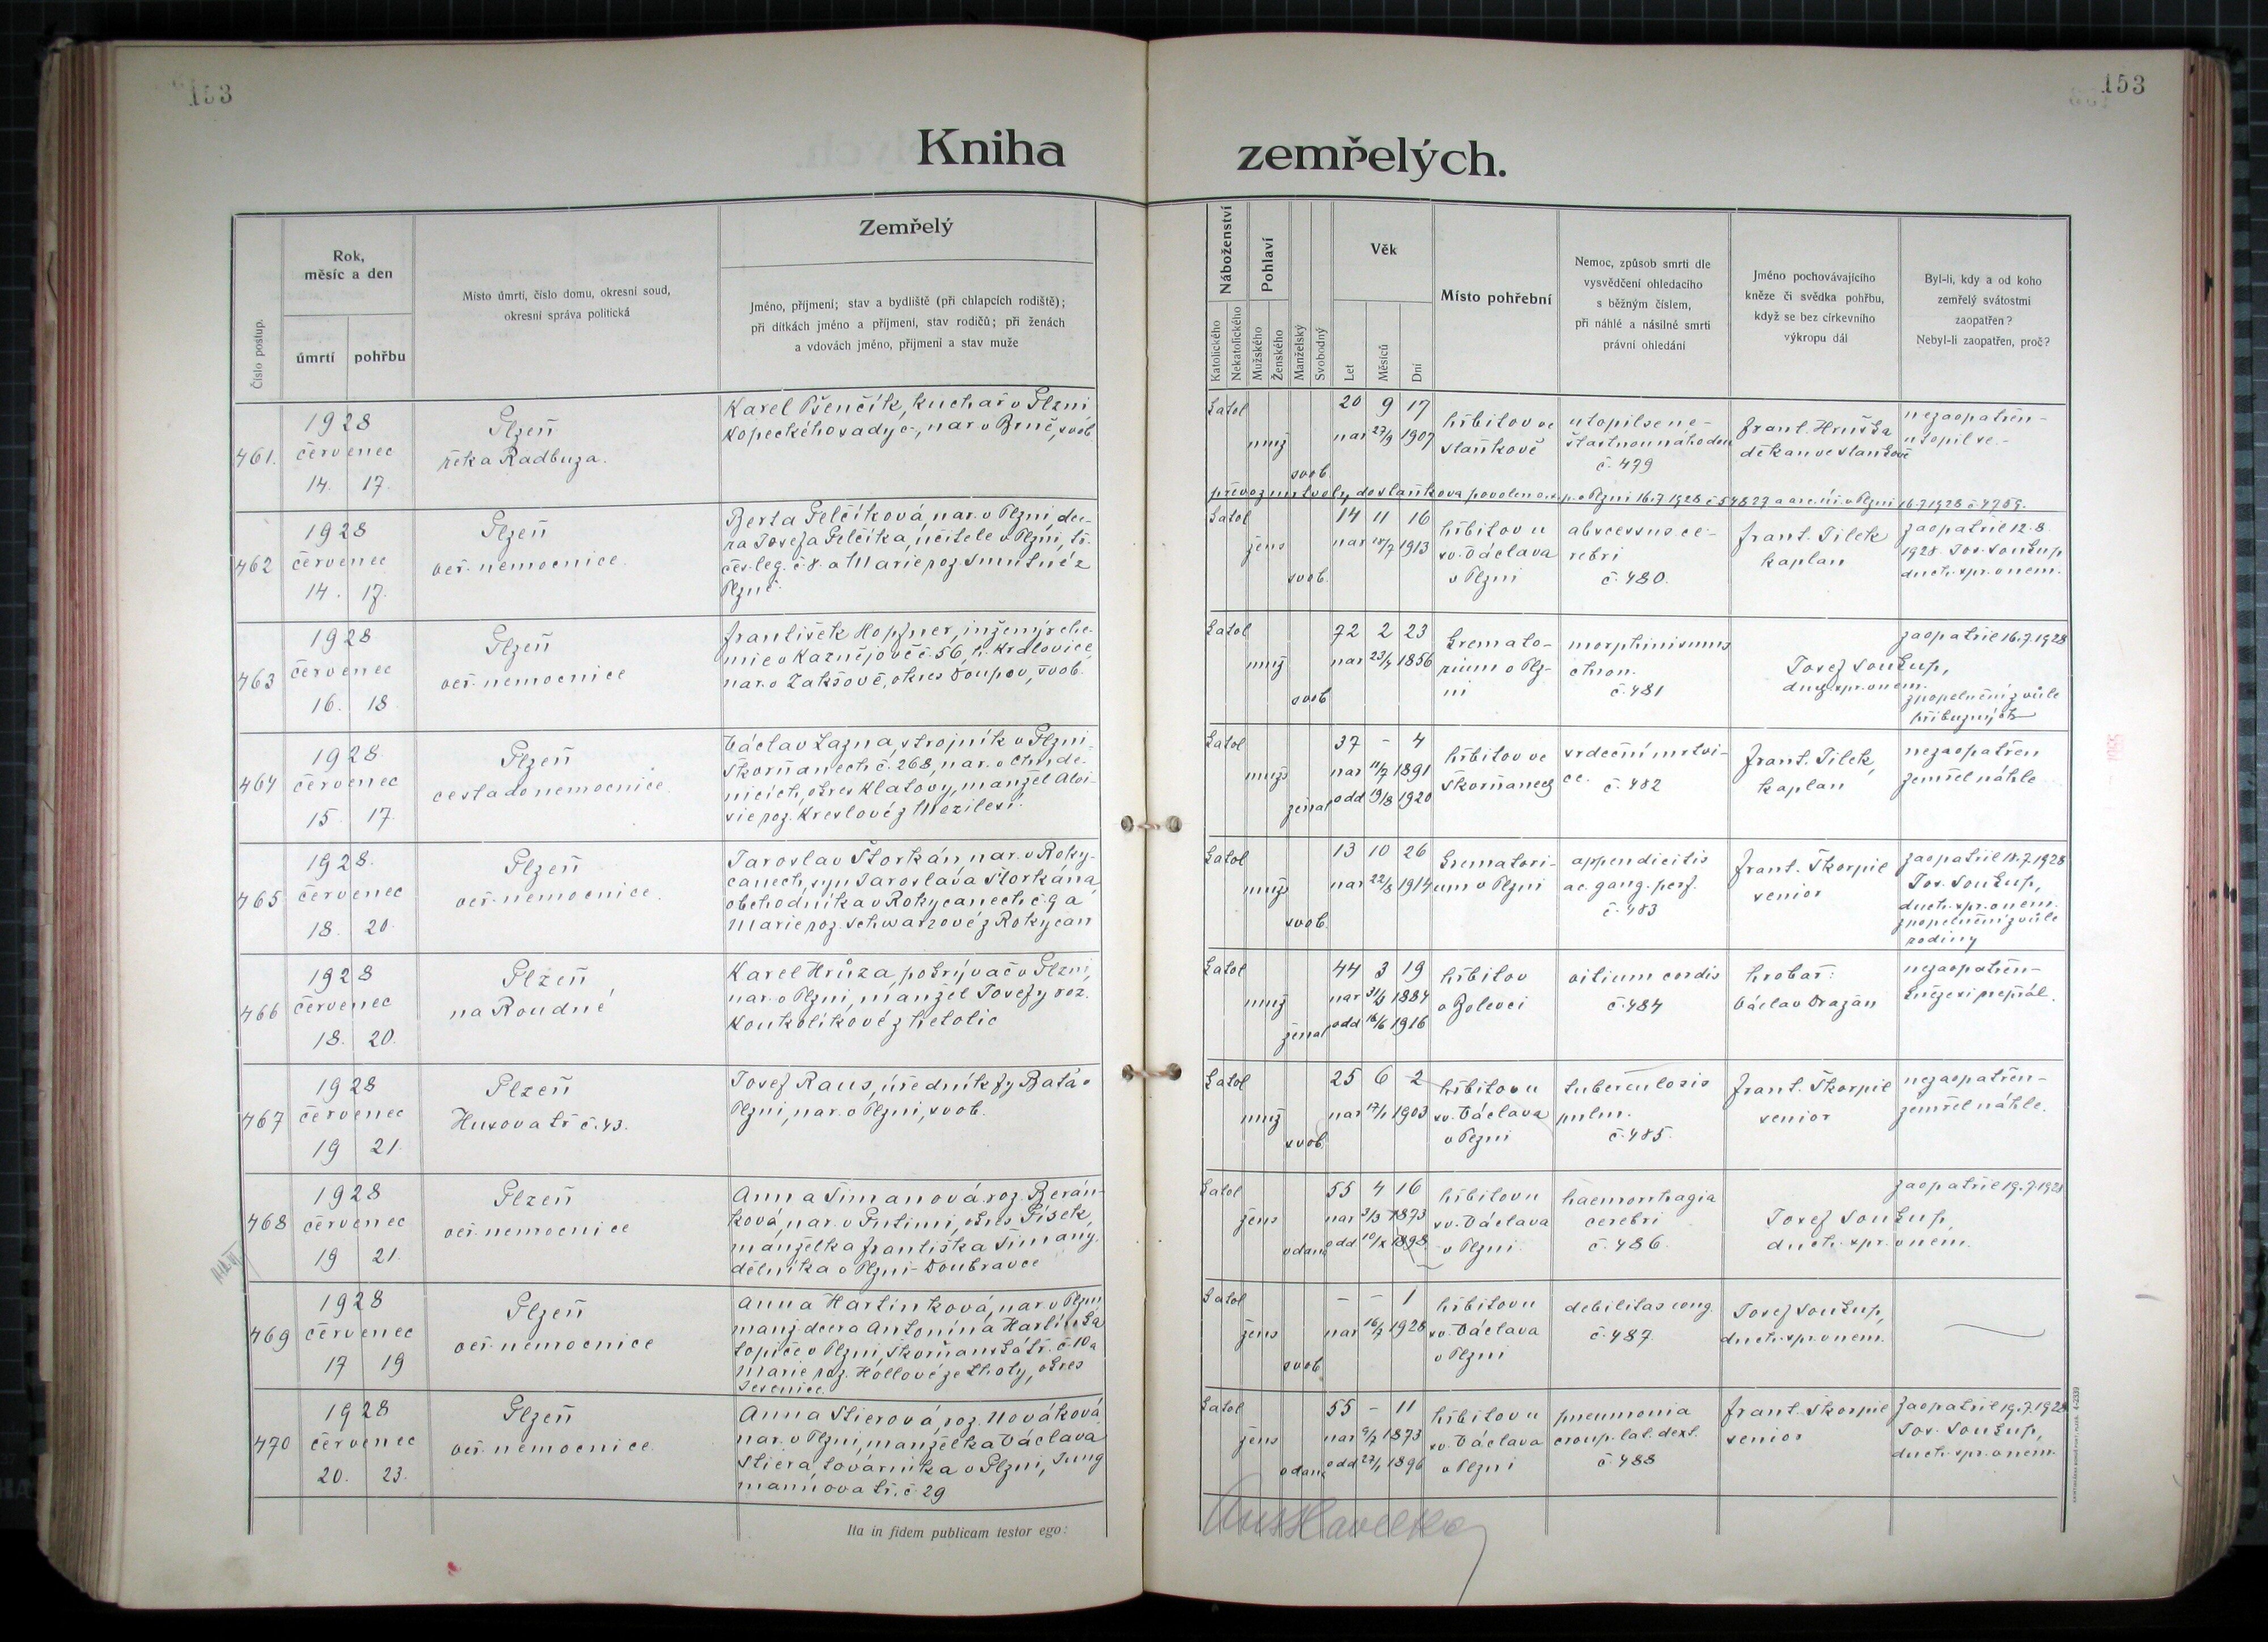 153
153
Kniha zemřelých.
Číslo postup.
Rok,
měsíc a den
úmrtí
pohřbu
Místo úmrtí, číslo domu, okresní soud,
okresní správa politická
Zemřelý
Jméno, příjmení; stav a bydliště (při chlapcích rodiště);
při dítkách jméno a příjmení, stav rodičů; při ženách
a vdovách jméno, příjmení a stav muže
Náboženství
Katolického
Nekatolického
Pohlaví
Mužského
Ženského
Manželský
Svobodný
Věk
Let
Měsíců
Dní
Místo pohřební
Nemoc, způsob smrti dle
vysvědčení ohledacího
s běžným číslem,
při náhlé a násilné smrti
právní ohledání
Jméno pochovávajícího
kněze či svědka pohřbu,
když se bez církevního
výkropu dál
Byl-li, kdy a od koho
zemřelý svátostmi
zaopatřen?
Nebyl-li zaopatřen, proč?
461.
1928
červenec
14. 17.
Plzeň
řeka Radbuza.
Karel Pšenčík, kuchař v Plzni
Kopeckého sady č-, nar. v Brně, svob
katol
muž
svob
20 9 17
nar 27/9 1907
hřbitov ve
Staňkově
utopil se ne-
šťastnou náhodou
č. 479
Frant. Hruška
děkan ve Staňkově
nezaopatřen-
utopil se.-
převoz mrtvoly do Staňkova povolen o.s.p. v Plzni 16.7.1928 č 54827 a arc. úř. v Plzni 16.7.1928 č 4759.
462
1928
červenec
14. 17.
Plzeň
veř. nemocnice.
Berta Pelčíková, nar. v Plzni, dce-
ra Josefa Pelčíka, učitele v Plzni, tř.
čes. leg. č 8. a Marie roz. Smutné z
Plzně.
katol
žens
svob.
14 11 16
nar 28/7 1913
hřbitov u
sv. Václava
v Plzni
abscessus ce-
rebri
č. 480.
Frant. Tilek
kaplan
zaopatřil 12.8.
1928. Jos. Soukup
duch. spr. v nem.
463
1928
červenec
16. 18
Plzeň
veř. nemocnice
František Hopfner, inženýr che-
mie v Kaznějově č. 56, h. Kralovice,
nar. v Zakšově, okres Doupov, svob.
katol
muž
svob
72 2 23
nar 23/4 1856
kremato-
rium v Plz-
ni
morphinismus
chron.
č. 481
Josef Soukup,
duch. spr. v nem.
zaopatřil 16.7.1928
zpopelnění z vůle
příbuzných
464
1928.
červenec
15. 17.
Plzeň
cesta do nemocnice.
Václav Lazna, strojník v Plzni-
Škorňanech č. 268, nar. v Chude-
nicích, okres Klatovy, manžel Aloi-
sie roz. Kreslové z Mezilesí.
katol
muž
ženat
37 - 4
nar 11/7 1891
odd 19/8 1920
hřbitov ve
Škorňanech
srdeční mrtvi-
ce.
č. 482
Frant. Tilek,
kaplan
nezaopatřen
zemřel náhle
465
1928.
červenec
18. 20.
Plzeň
veř. nemocnice.
Jaroslav Štorkán, nar. v Roky-
canech, syn Jaroslava Štorkána
obchodníka v Rokycanech č. 9 a
Marie roz. Schwarzové z Rokycan
katol
muž
svob.
13 10 26
nar 22/8 1914
krematori-
um v Plzni
appendicitis
ac. gang. perf.
č. 483
Frant. Škorpil
senior
zaopatřil 18.7.1928
Jos. Soukup,
duch. spr. v nem.
zpopelnění z vůle
rodiny
466
1928
červenec
18. 20.
Plzeň
na Roudné
Karel Hrůza, pokrývač v Plzni,
nar. v Plzni, manžel Josefy roz.
Koukolíkové z Netolic
katol
muž
ženat
44 3 19
nar 31/3 1884
odd 18/6 1916
hřbitov
v Bolevci
vitium cordis
č. 484
hrobař:
Václav Dražan
nezaopatřen-
kněze si nepřál.
467
1928
červenec
19 21.
Plzeň
Husova tř č. 43.
Josef Raus, úředník fy Baťa v
Plzni, nar. v Plzni, svob.
katol
muž
svob.
25 6 2
nar 17/1 1903
hřbitov u
sv. Václava
v Plzni
tuberculosis
pulm.
č. 485.
Frant. Škorpil
senior
nezaopatřen-
zemřel náhle.
468
1928
červenec
19 21.
Plzeň
veř. nemocnice
Anna Šimanová roz. Berán-
ková, nar. v Putimi, okres Písek,
manželka Františka Šimany,
dělníka v Plzni-Doubravce
katol
žens
vdaná
55 4 16
nar 3/3 1873
odd 10/X 1898.
hřbitov u
sv. Václava
v Plzni.
haemorrhagia
cerebri
č. 486.
Josef Soukup,
duch. spr. v nem.
zaopatřil 19.7.1928
469
1928
červenec
17 19
Plzeň
veř. nemocnice
Anna Hartinková, nar. v Plzni
manž. dcera Antonína Hartinka
topiče v Plzni, Škorňanská tř. č. 10 a
Marie roz. Hollové ze Lhoty, okres
Jesenice.
katol
žens
svob
- - 1
nar 16/7 1928
hřbitov u
sv. Václava
v Plzni
debilitas cong.
č. 487.
Josef Soukup,
duch. spr. v nem.
470
1928
červenec
20. 23.
Plzeň
veř. nemocnice.
Anna Stierová, roz. Nováková,
nar. v Plzni, manželka Václava
Stiera, továrníka v Plzni, Jung
mannova tř. č 29
katol
žens
vdaná
55 - 11
nar 9/7 1873
odd 27/1 1896
hřbitov u
sv. Václava
v Plzni
pneumonia
croup. lat. dext.
č. 488
Frant. Škorpil
senior
zaopatřil 19.7.1928
Jos. Soukup,
duch. spr. v nem.
Ita in fidem publicam testor ego: